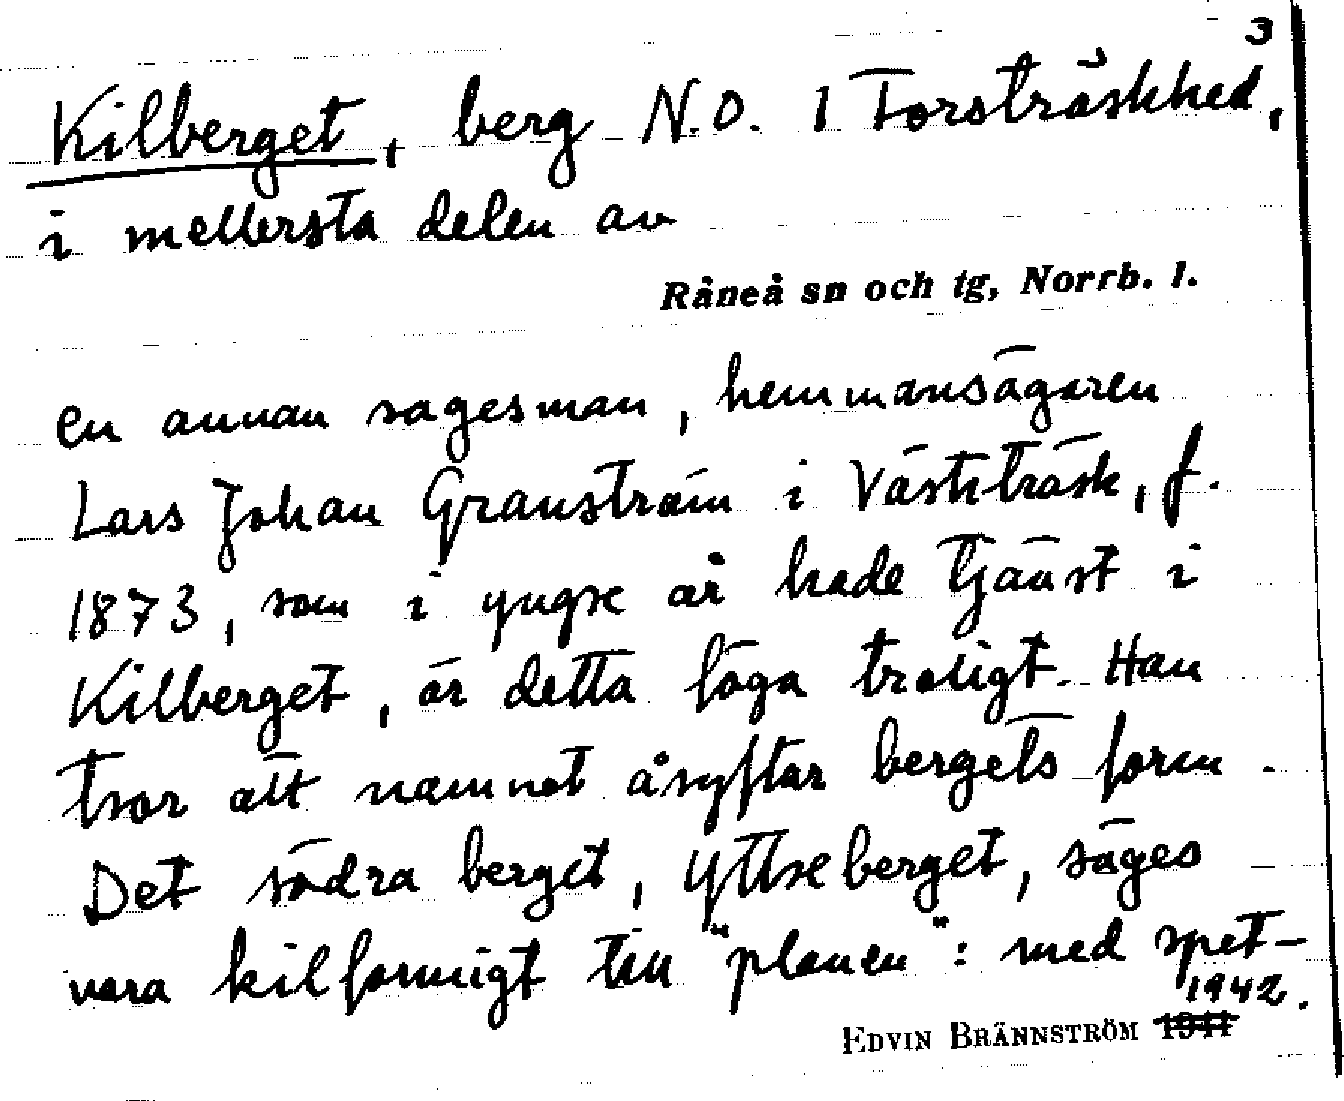 3
Kilberget, berg N.O. 1 Forsträskhed,
i mellersta delen av
Råneå sn och tg, Norrb. l.
en annan sagesman, hemmansägaren
Lars Johan Granström i Västiträsk, f.
1873, som i yngre år hade tjänst i
Kilberget, är detta föga troligt. Han
tror att namnet åsyftar bergets form.
Det södra berget, Yttreberget, säges
vara kilformigt till "planen": med spet-
1942.
EDVIN BRÄNNSTRÖM 1941